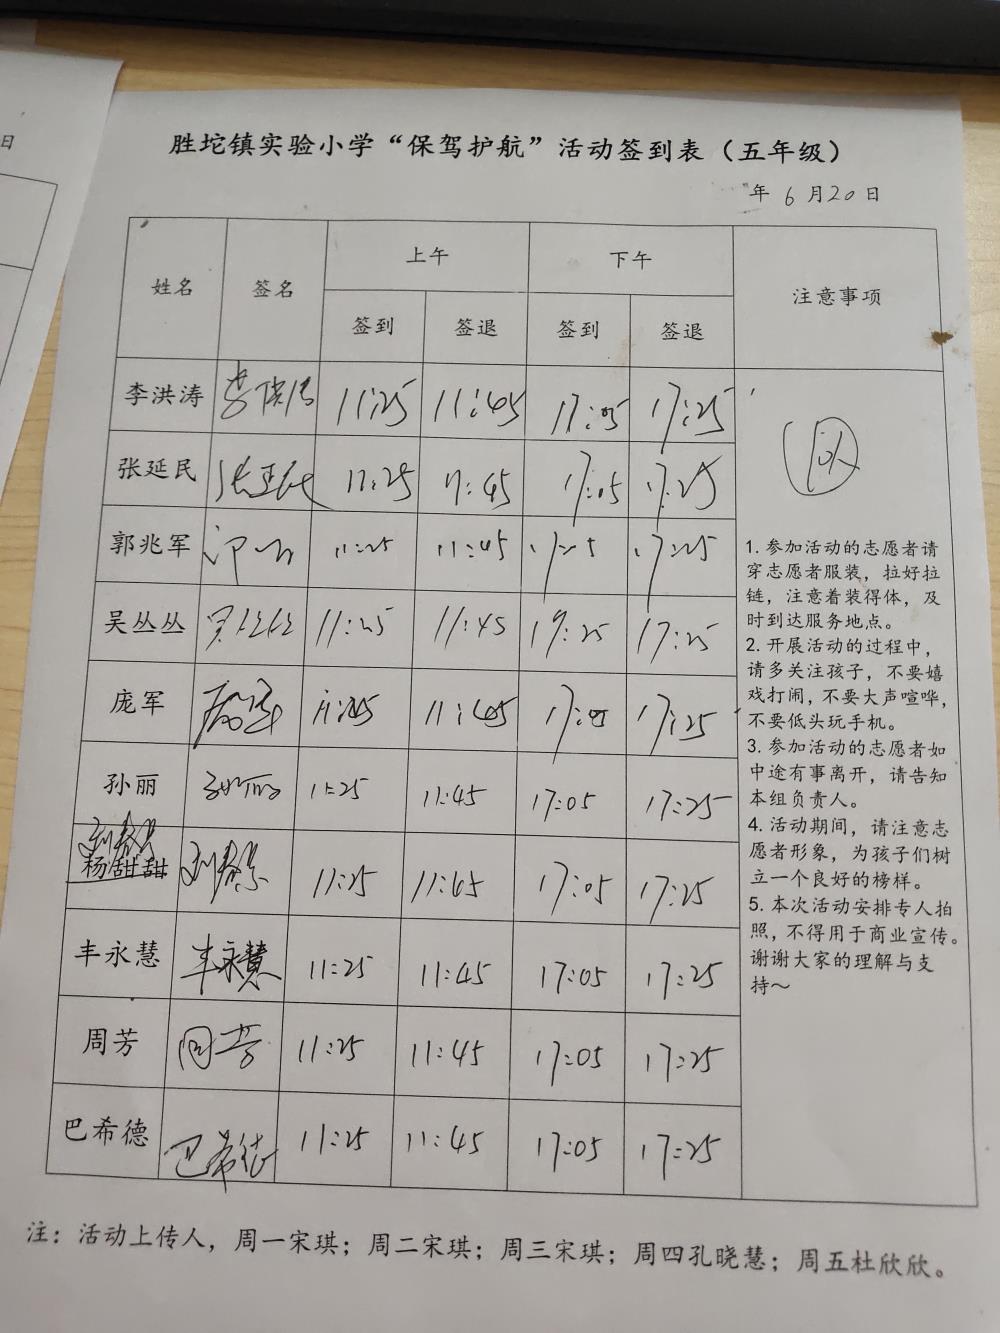 日
胜坨镇实验小学“保驾护航”活动签到表（五年级）
年 6月20日
姓名 签名 上午 下午 注意事项
签到 签退 签到 签退
李洪涛 李洪涛 11:25 11:45 17:05 17:25
张延民 张延民 11:25 11:45 17:05 17:25
郭兆军 11:25 11:45 17:25
吴丛丛 吴丛丛 11:25 11:45 17:25 17:25
庞军 庞军 11:45 17:25
孙丽 孙丽 11:25 11:45 17:05 17:25
杨甜甜 11:25 11:45 17:05 17:25
丰永慧 丰永慧 11:25 11:45 17:05 17:25
周芳 周芳 11:25 11:45 17:05 17:25
巴希德 巴希德 11:25 11:45 17:05 17:25
1. 参加活动的志愿者请
穿志愿者服装，拉好拉
链，注意着装得体，及
时到达服务地点。
2. 开展活动的过程中，
请多关注孩子，不要嬉
戏打闹，不要大声喧哗，
不要低头玩手机。
3. 参加活动的志愿者如
中途有事离开，请告知
本组负责人。
4. 活动期间，请注意志
愿者形象，为孩子们树
立一个良好的榜样。
5. 本次活动安排专人拍
照，不得用于商业宣传。
谢谢大家的理解与支
持～
注：活动上传人，周一宋琪；周二宋琪；周三宋琪；周四孔晓慧；周五杜欣欣。